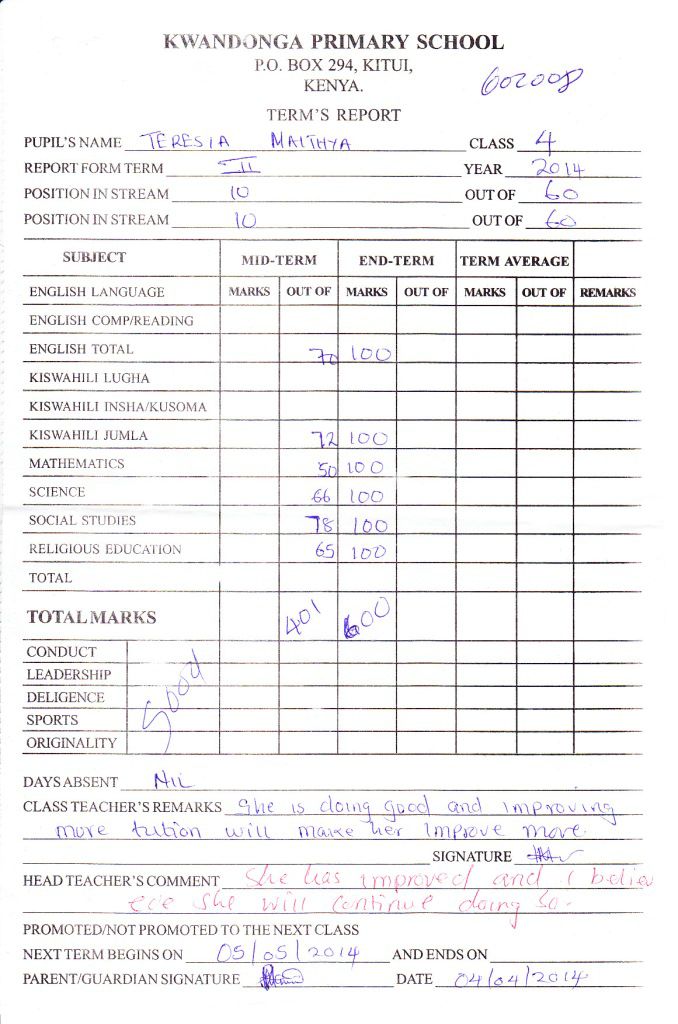 KWANDONGA PRIMARY SCHOOL
P.O. BOX 294, KITUI,
KENYA.
602008
TERM'S REPORT
PUPIL'S NAME TERESIA MAITHYA CLASS 4
REPORT FORM TERM II YEAR 2014
POSITION IN STREAM 10 OUT OF 60
POSITION IN STREAM 10 OUT OF 60
SUBJECT MID-TERM END-TERM TERM AVERAGE
ENGLISH LANGUAGE MARKS OUT OF MARKS OUT OF MARKS OUT OF REMARKS
ENGLISH COMP/READING
ENGLISH TOTAL 70 100
KISWAHILI LUGHA
KISWAHILI INSHA/KUSOMA
KISWAHILI JUMLA 72 100
MATHEMATICS 50 100
SCIENCE 66 100
SOCIAL STUDIES 78 100
RELIGIOUS EDUCATION 65 100
TOTAL
TOTAL MARKS 401 600
CONDUCT
LEADERSHIP
DELIGENCE Good
SPORTS
ORIGINALITY
DAYS ABSENT Nil
CLASS TEACHER'S REMARKS She is doing good and improving
more tution will make her improve more.
SIGNATURE
HEAD TEACHER'S COMMENT She has improved and I believ
eve she will continue doing so.
PROMOTED/NOT PROMOTED TO THE NEXT CLASS
NEXT TERM BEGINS ON 05/05/2014 AND ENDS ON
PARENT/GUARDIAN SIGNATURE DATE 04/04/2014